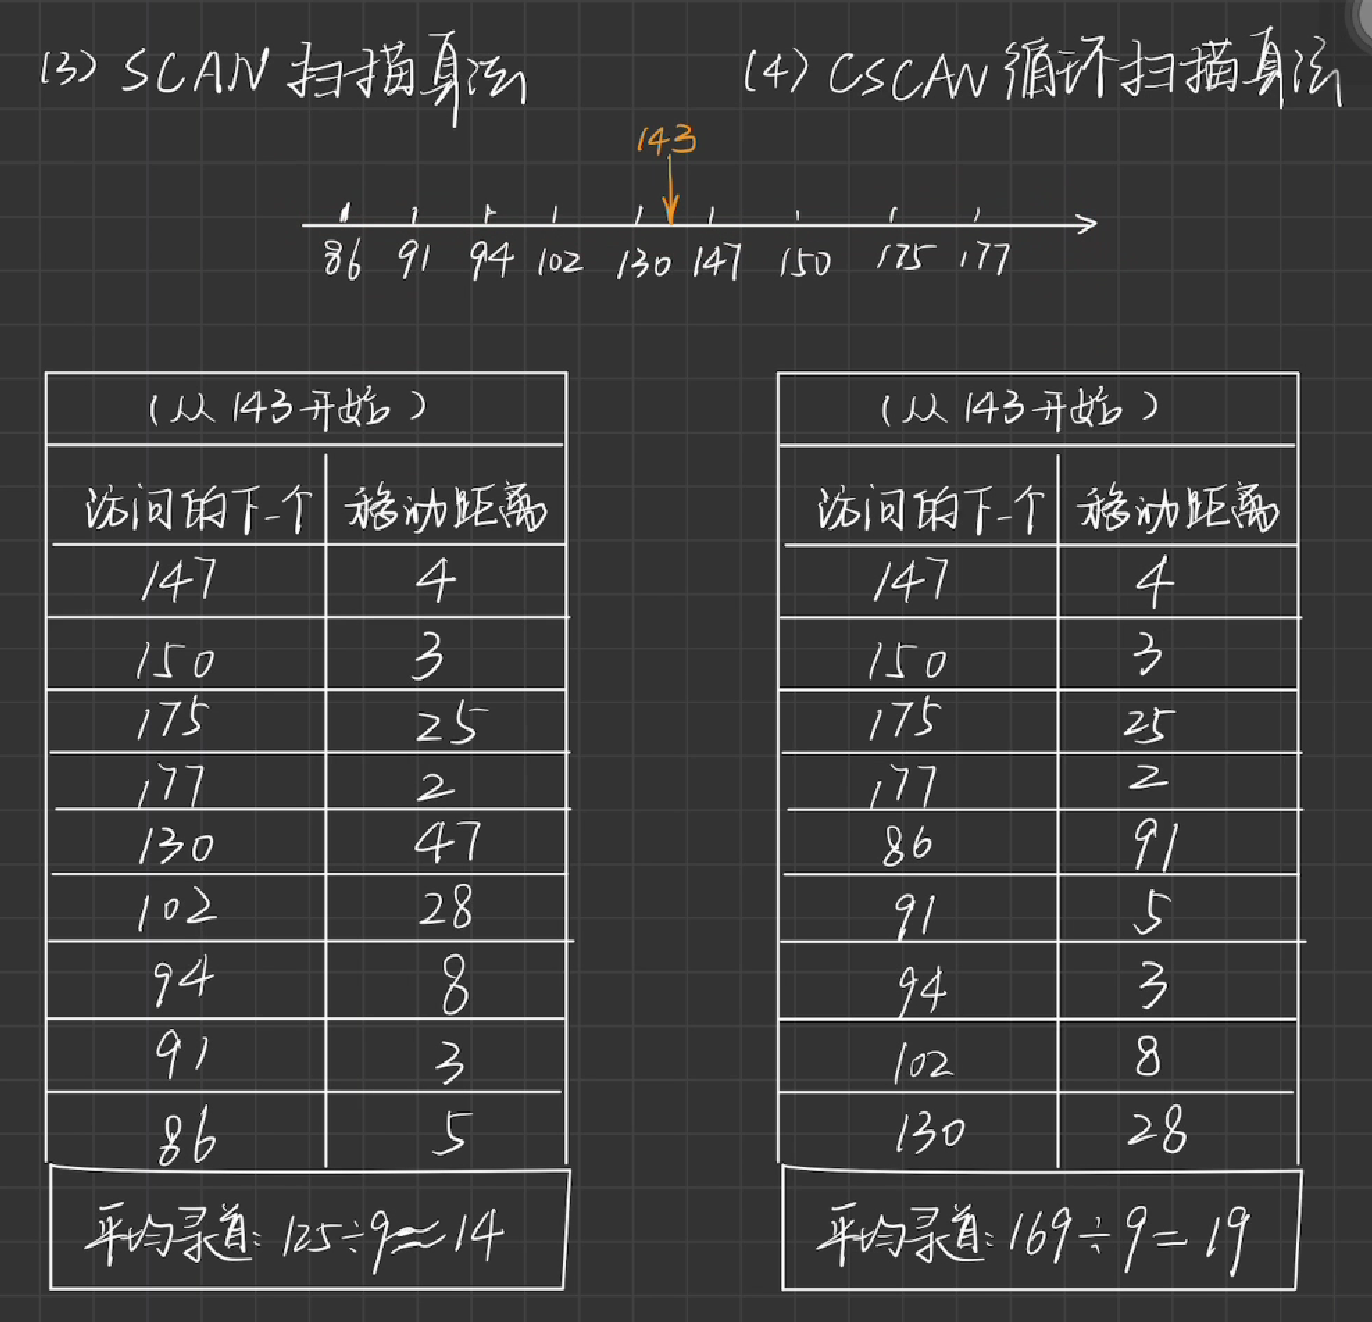 (3) SCAN 扫描算法
(4) CSCAN 循环扫描算法
143
86 91 94 102 130 147 150 175 177
(从143开始)
访问的下一个 移动距离
147 4
150 3
175 25
177 2
130 47
102 28
94 8
91 3
86 5
平均寻道: 125÷9≈14
(从143开始)
访问的下一个 移动距离
147 4
150 3
175 25
177 2
86 91
91 5
94 3
102 8
130 28
平均寻道: 169÷9=19